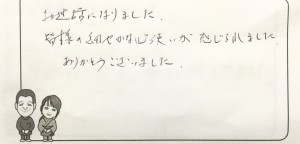 お世話になりました。
皆様の細やかな心遣いが感じられました
ありがとうございました。